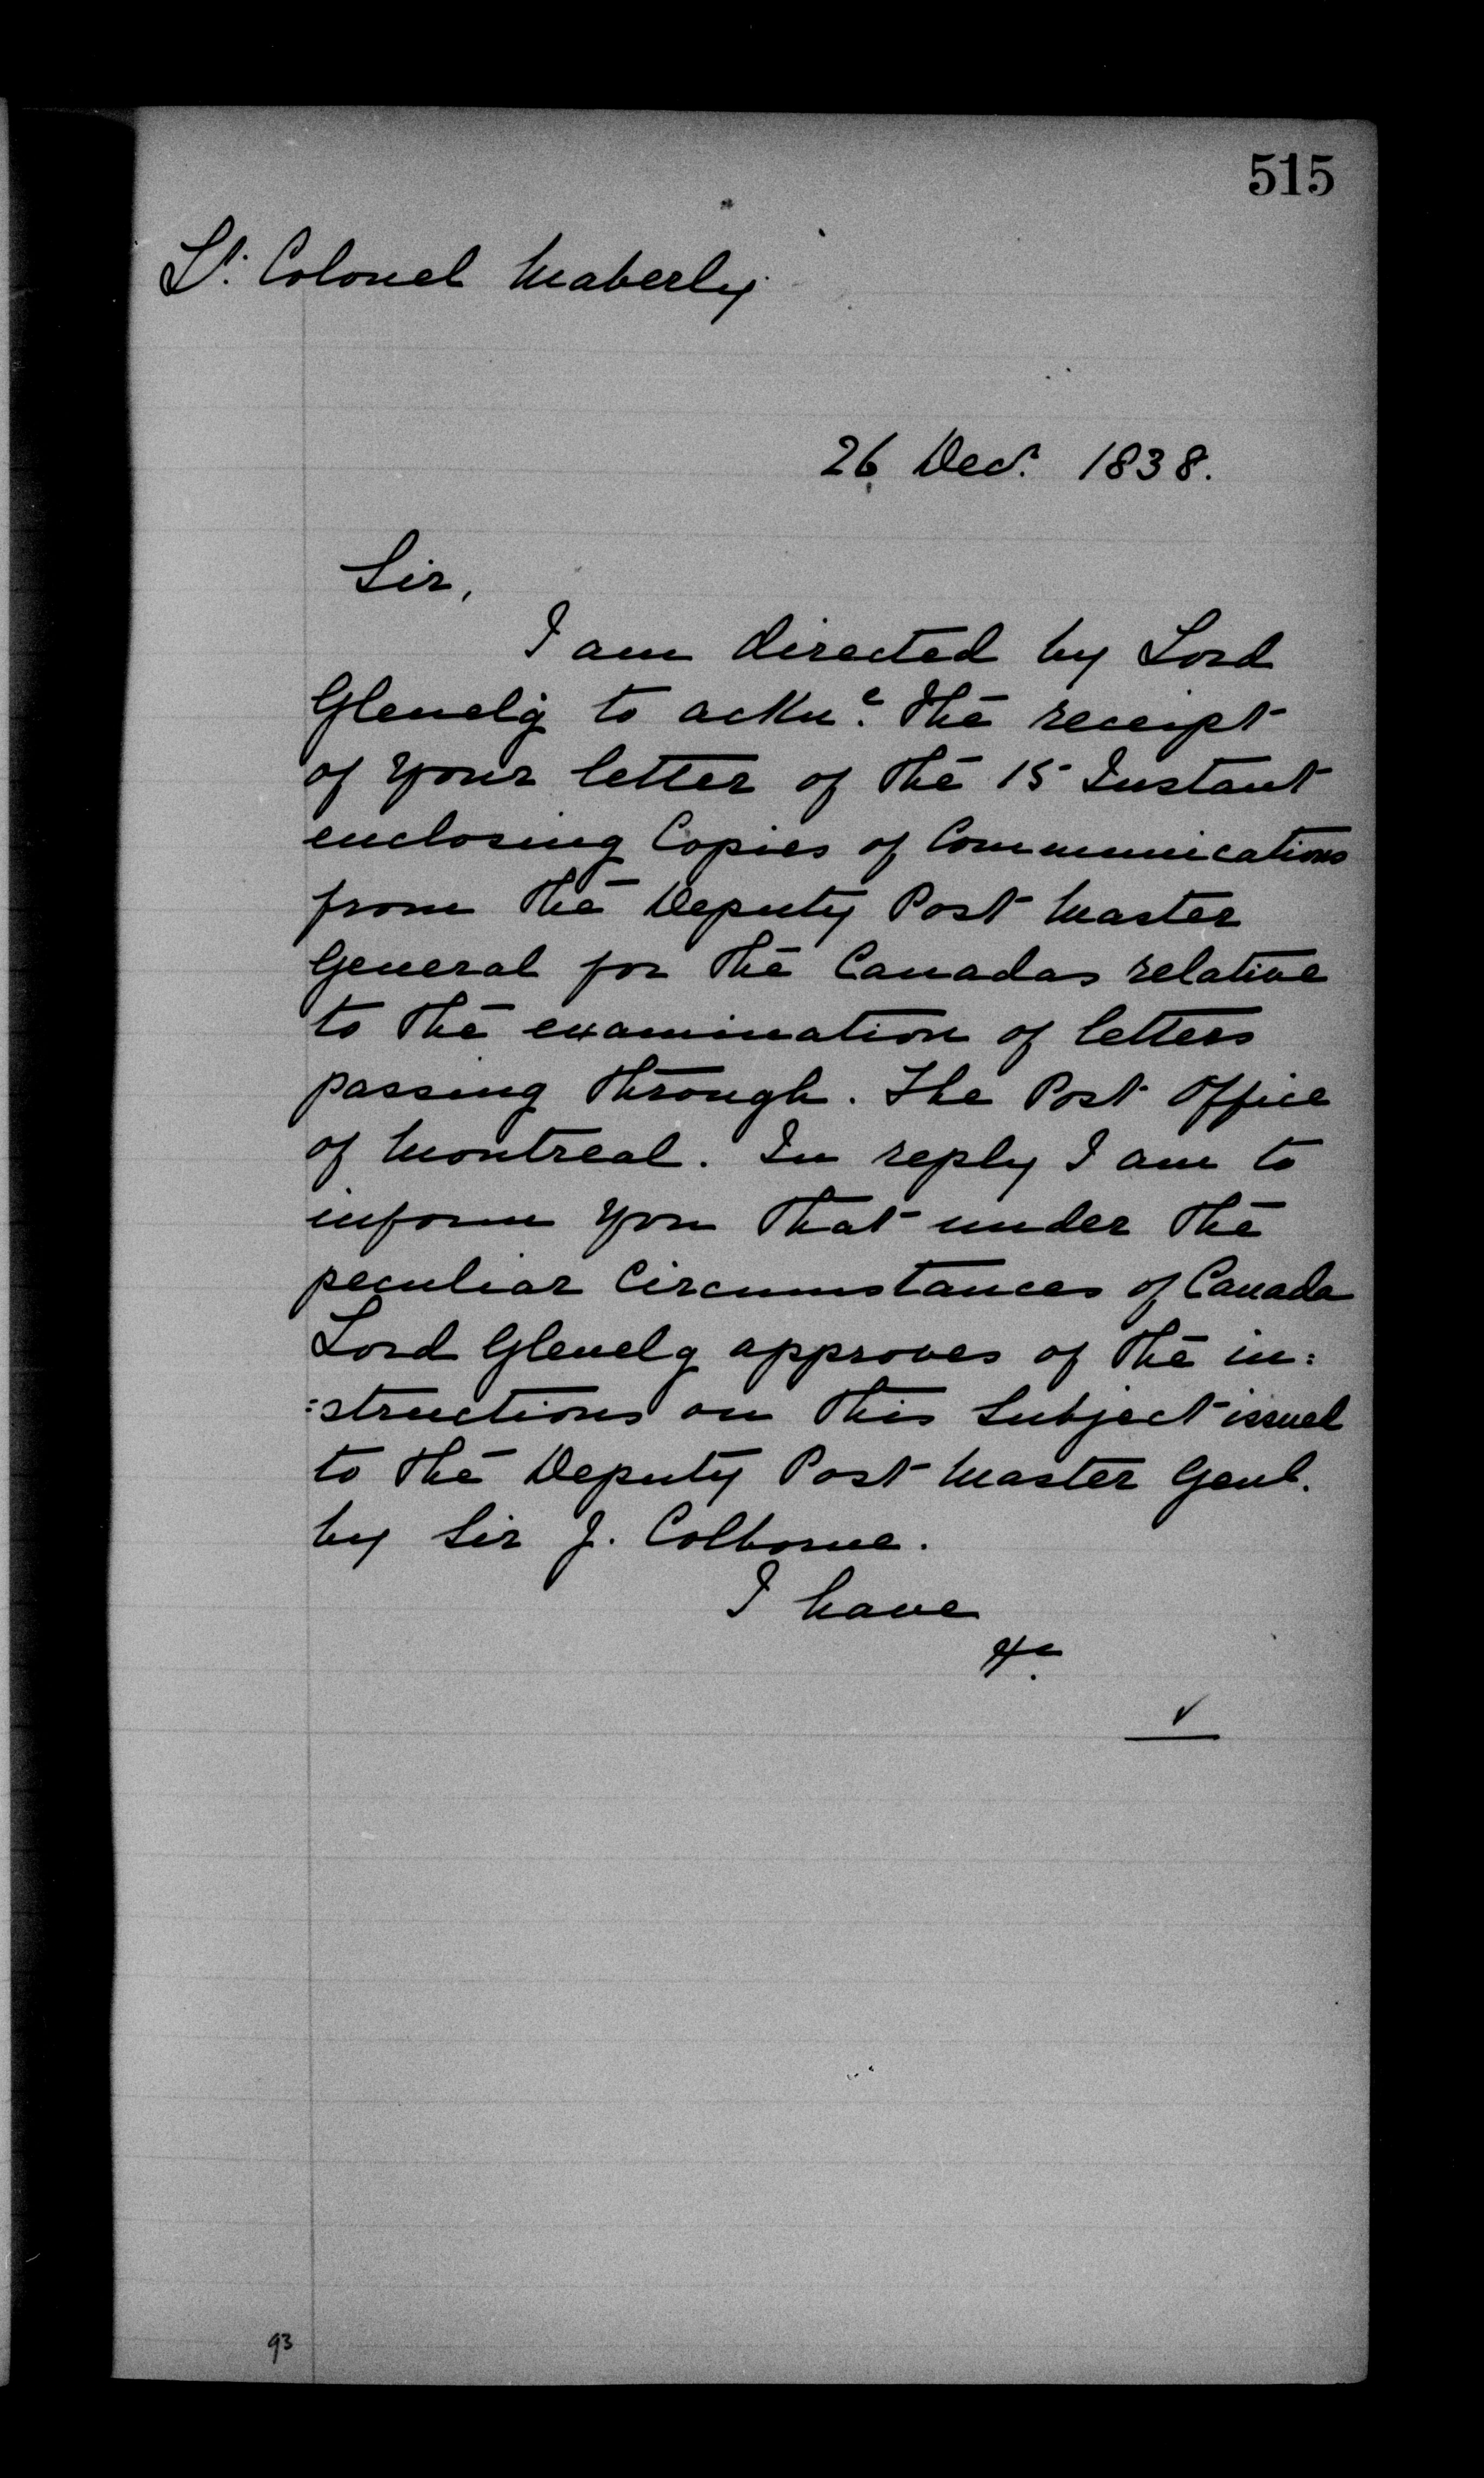 515
Lt. Colonel Maberly
26 Decr. 1838.
Sir,
I am directed by Lord
Glenelg to ackne. the receipt
of your letter of the 15 Instant
enclosing Copies of Communications
from the Deputy Post Master
General for the Canadas relative
to the examination of letters
passing through. The Post Office
of Montreal. In reply I am to
inform you that under the
peculiar Circumstances of Canada
Lord Glenelg approves of the in:
:structions on this Subject issued
to the Deputy Post Master Genl.
by Sir J. Colborne.
I have
&c.
93